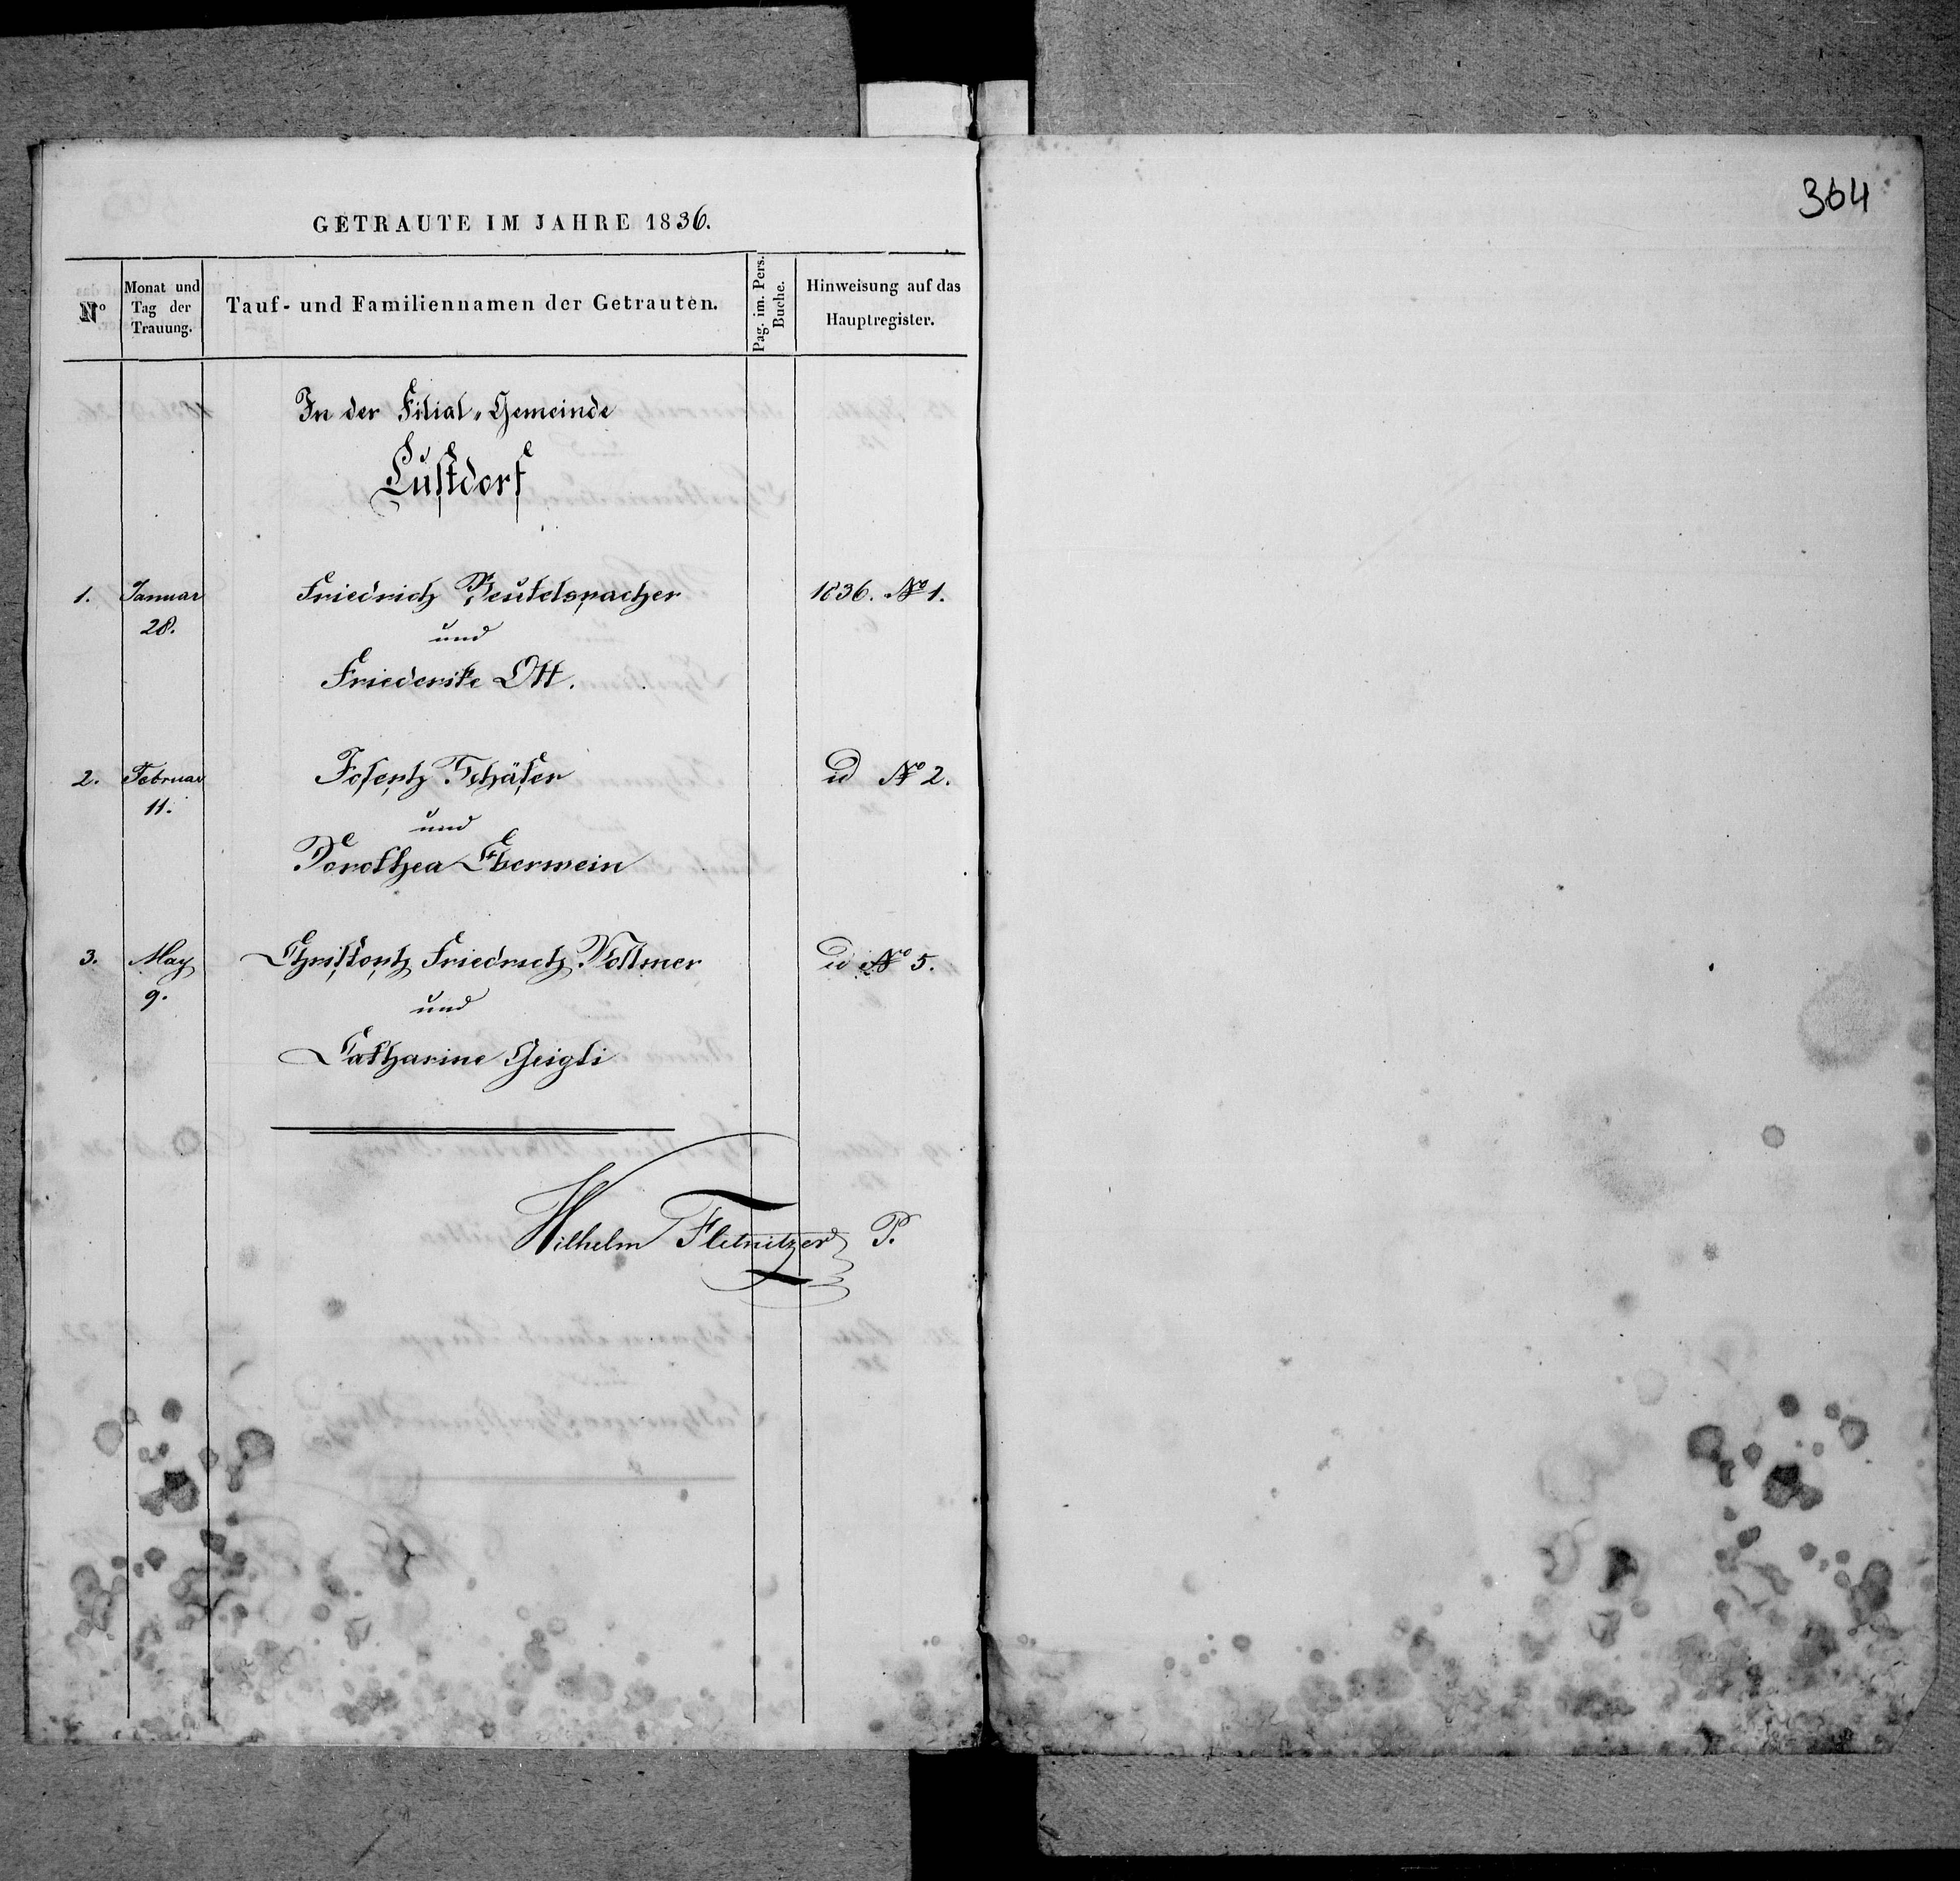 364
GETRAUTE IM JAHRE 1836.
Nº
Monat und
Tag der
Trauung.
Tauf- und Familiennamen der Getrauten.
Pag. im. Pers.
Buche.
Hinweisung auf das
Hauptregister.
In der Filial-Gemeinde
Lustdorf
1. Januar Friedrich Beutelspacher 1836. Nº 1.
28.
und
Friederike Ott.
2. Februar Joseph Schäfer id Nº 2.
11.
und
Dorothea Eberwein
3. May Christoph Friedrich Vollmer id Nº 5.
9.
und
Catharine Geigli
Wilhelm Fletnitzer P.